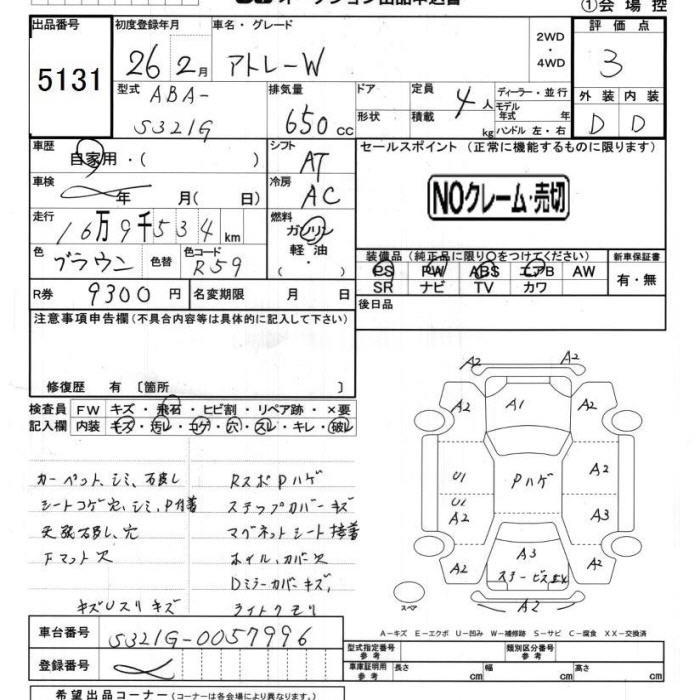 オークション出品申込書
①会場控
出品番号 5131
初度登録年月 26 2月
車名・グレード アトレーW
2WD・4WD
評価点 3
型式 ABA-S321G
排気量 650 cc
ドア 形状
定員 4人
積載 kg
ディーラー・並行
モデル年式 年
ハンドル 左・右
外装 D 内装 D
車歴 自家用・( )
シフト AT
車検 年 月( 日)
冷房 AC
走行 16万9千534km
燃料 ガソリン・軽油・( )
色 ブラウン 色替 色コード R59
R券 9300円 名変期限 月 日
セールスポイント (正常に機能するものに限ります)
NOクレーム・売切
装備品(純正品に限り○をつけてください) 新車保証書
PS PW ABS エアB AW 有・無
SR ナビ TV カワ
後日品
注意事項申告欄(不具合内容等は具体的に記入して下さい)
修復歴 有 〔箇所 〕
検査員記入欄 FW キズ・飛石・ヒビ割・リペア跡・×要
内装 キズ・汚レ・コゲ・穴・スレ・キレ・破レ
カーペット、シミ、破レ
シートコゲ穴、シミ、P付着
天張破レ、穴
Fマット欠
キズUスリキズ
RスポPハゲ
ステップカバーキズ
マグネットシート接着
ホイル、カバー欠
Dミラーカバーキズ、
ライトクモリ
A2 A2
A2 A1 A2
U1 Pハゲ A2
U1 A2 A3
A2 A3 A2
A2
スペア
A-キズ E-エクボ U-凹み W-補修跡 S-サビ C-腐食 XX-交換済
車台番号 S321G-0057996
登録番号
型式指定番号 類別区分番号
車庫証明用参考 長さ cm 幅 cm 高さ cm
希望出品コーナー(コーナーは各会場により異なります。)